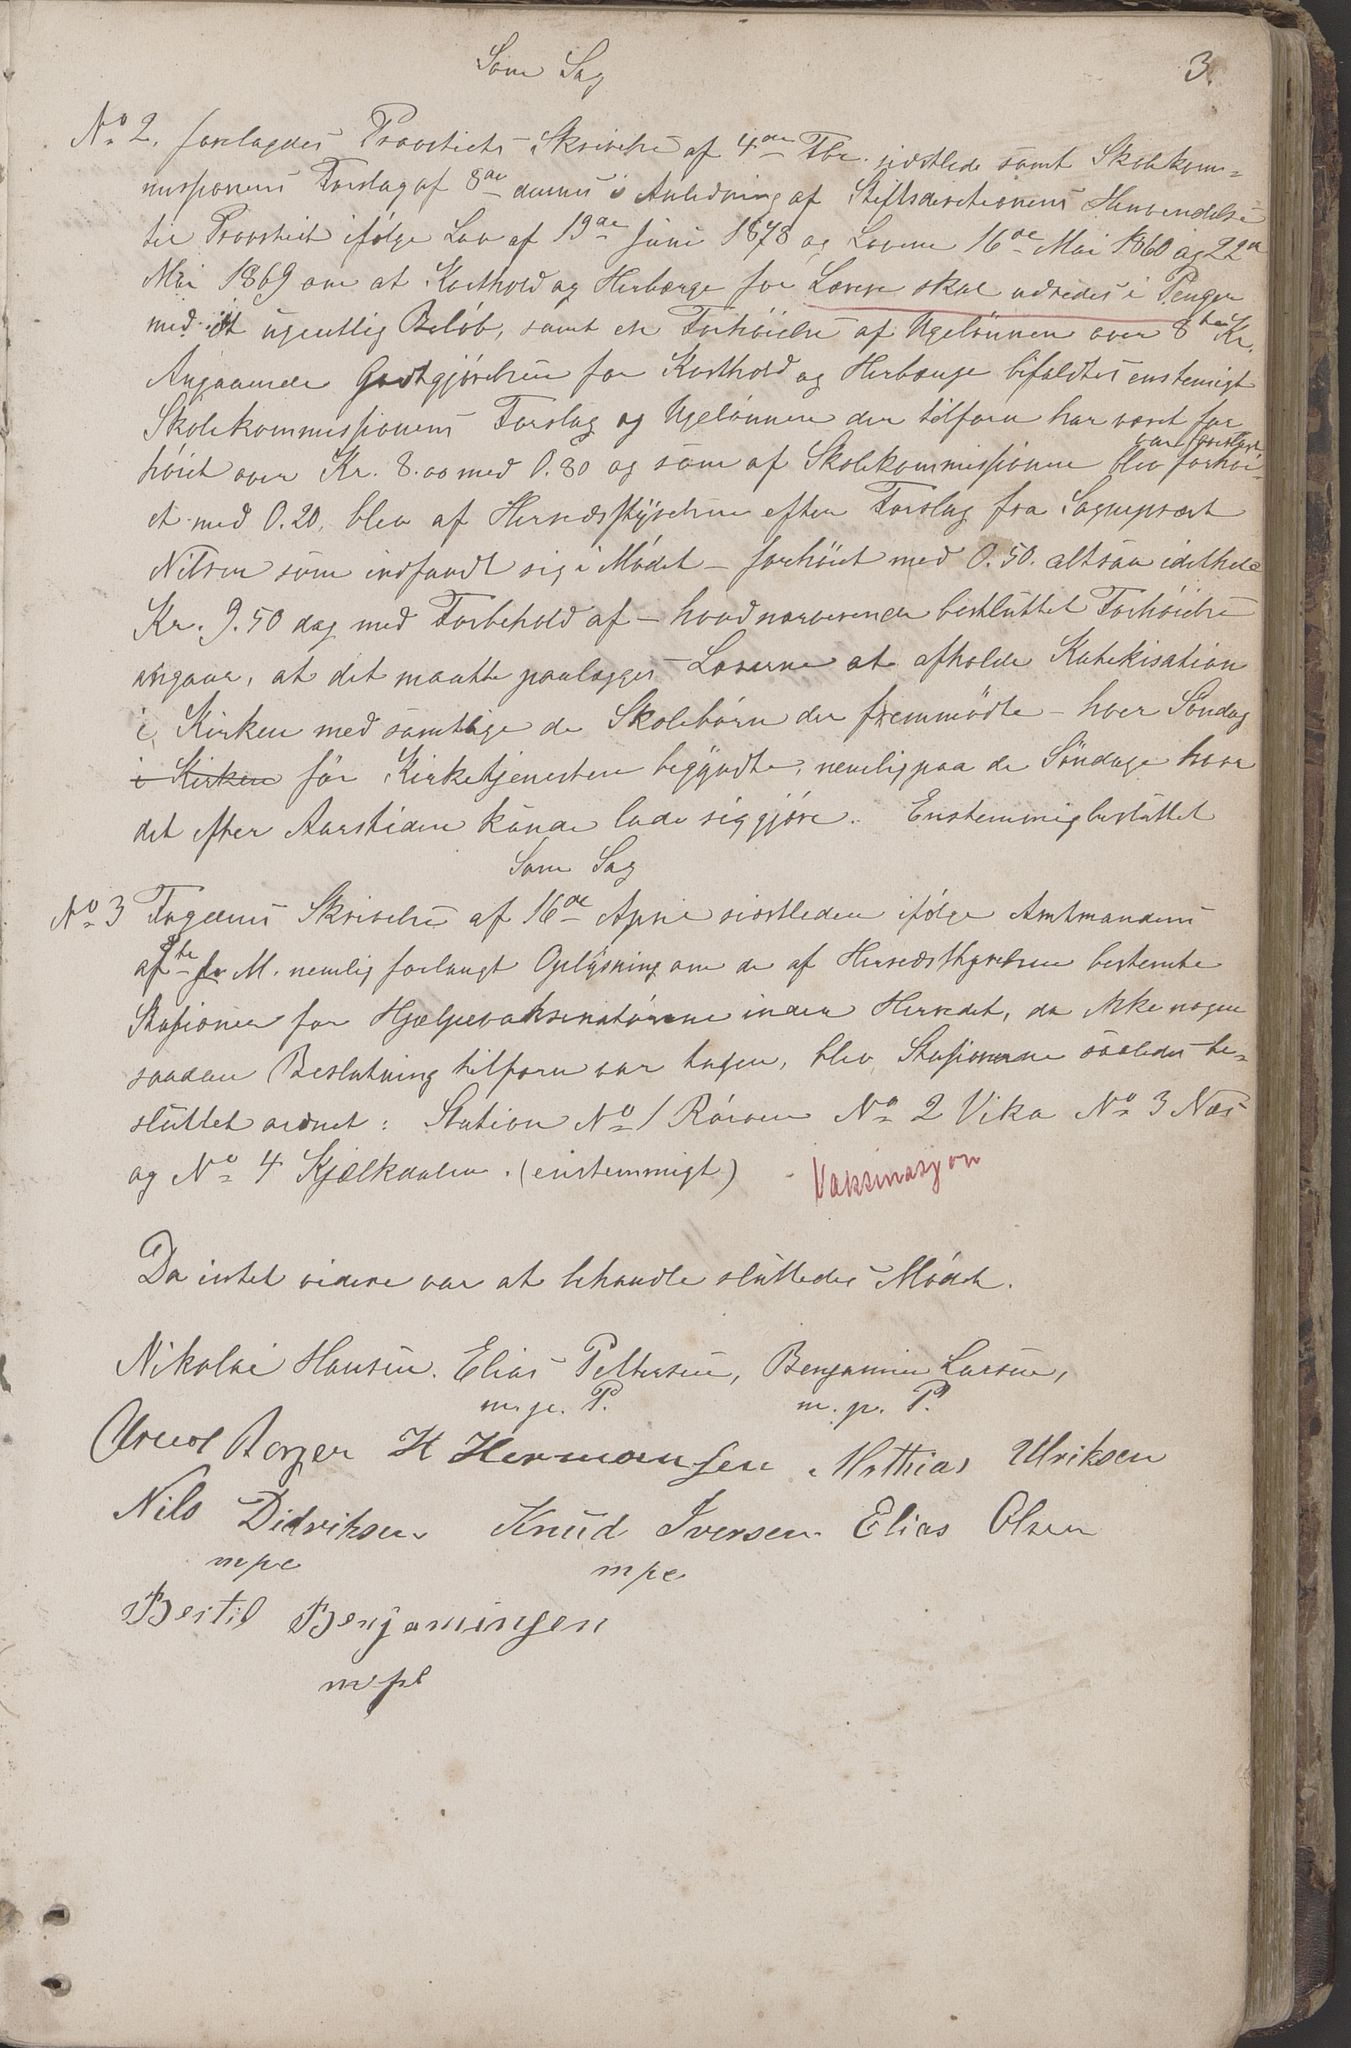 Som Sag
3.
No 2. forelagdes Provstiets Skrivelse af 4de Fbr. sidstlede samt Skolekom=
missionens Forslag af 8de dennes i Anledning af Stiftsdirectionens Henvendelse
til Provstiet ifølge Lov af 19de Juni 1878 og Lovene 16de Mai 1860 og 22de
Mai 1869 om at Kosthold og Herberge for Lærere skal udredes i Penger
med et ugentlig Beløb, samt en Forhøielse af Ugelønnen over 8te Kr.
Angaaende Godtgjørelsen for Kosthold og Herberge bifaldtes enstemigt
Skolekommissionens Forslag og Ugelønnen der tilforn har været for
høiet over Kr. 8.00 med 0.80 og som af Skolekommissionen blev forhøi-
et med 0.20, blev af Herredsstyrelsen efter Forslag fra Sogneprest
Nilsen som indfandt sig i Mødet – forhøiet med 0.50. altsaa idethele
Kr. 9.50 dog med Forbehold af – hvad nærværende besluttet Forhøielse
angaar, at det maatte paalægges Lærerne at afholde Katekisation
i Kirken med samtlige de Skolebørn der fremmødte – hver Søndag
i Kirken før Kirketjenesten begyndte, nemlig paa de Søndage hvor
det efter Aarstiden kunde lade sig gjøre. Enstemmig besluttet
Som Sag
No 3 Fogdens Skrivelse af 16de April sidstleden ifølge Amtmandens
af M. nemlig forlangt Oplysning om de af Herredsstyrelsen bestemte
Stasioner for Hjælpevaksinatørerne inden Herredet, da ikke nogen
saadan Beslutning tilforn var tagen, blev Stasionerne saaledes be-
sluttet ordnet: Station No 1 Røroen No 2 Vika No 3 Næs
og No 4 Kjelkdalen. (enstemmigt)
Vaksinasjon
Da intet videre var at behandle sluttedes Mødet.
Nikolai Hansen. Elias Pettersen, Benjamin Larsen,
m. p. P. m. p. P.
H Hermansen Mathias Ulriksen
Nils Didriksen Knud Iversen Elias Olsen
mpe mpe
Bertil Benjaminsen
mpl